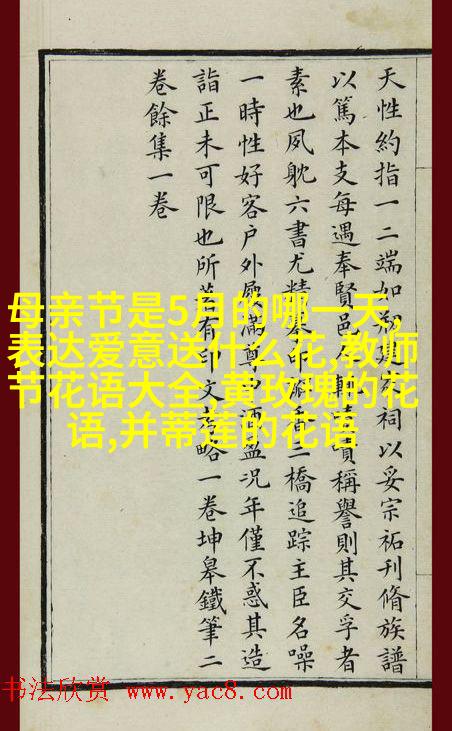 天性約指一二端如祠以妥宗祏刊脩族譜
以篤本支每遇奉賢邑稱譽則其交孚者
素也夙躭六書尤精篆印三橋追踪主臣名噪
一時性好客户外屨滿尊中酒盈況年僅不惑其造
詣正未可限也所著有印文考略一卷坤皋鐵筆二
卷餘集一卷
母亲节是5月的哪一天,
表达爱意送什么花,教师
节花语大全,黄玫瑰的花
语,并蒂莲的花语
书法欣赏 www.yac8.com